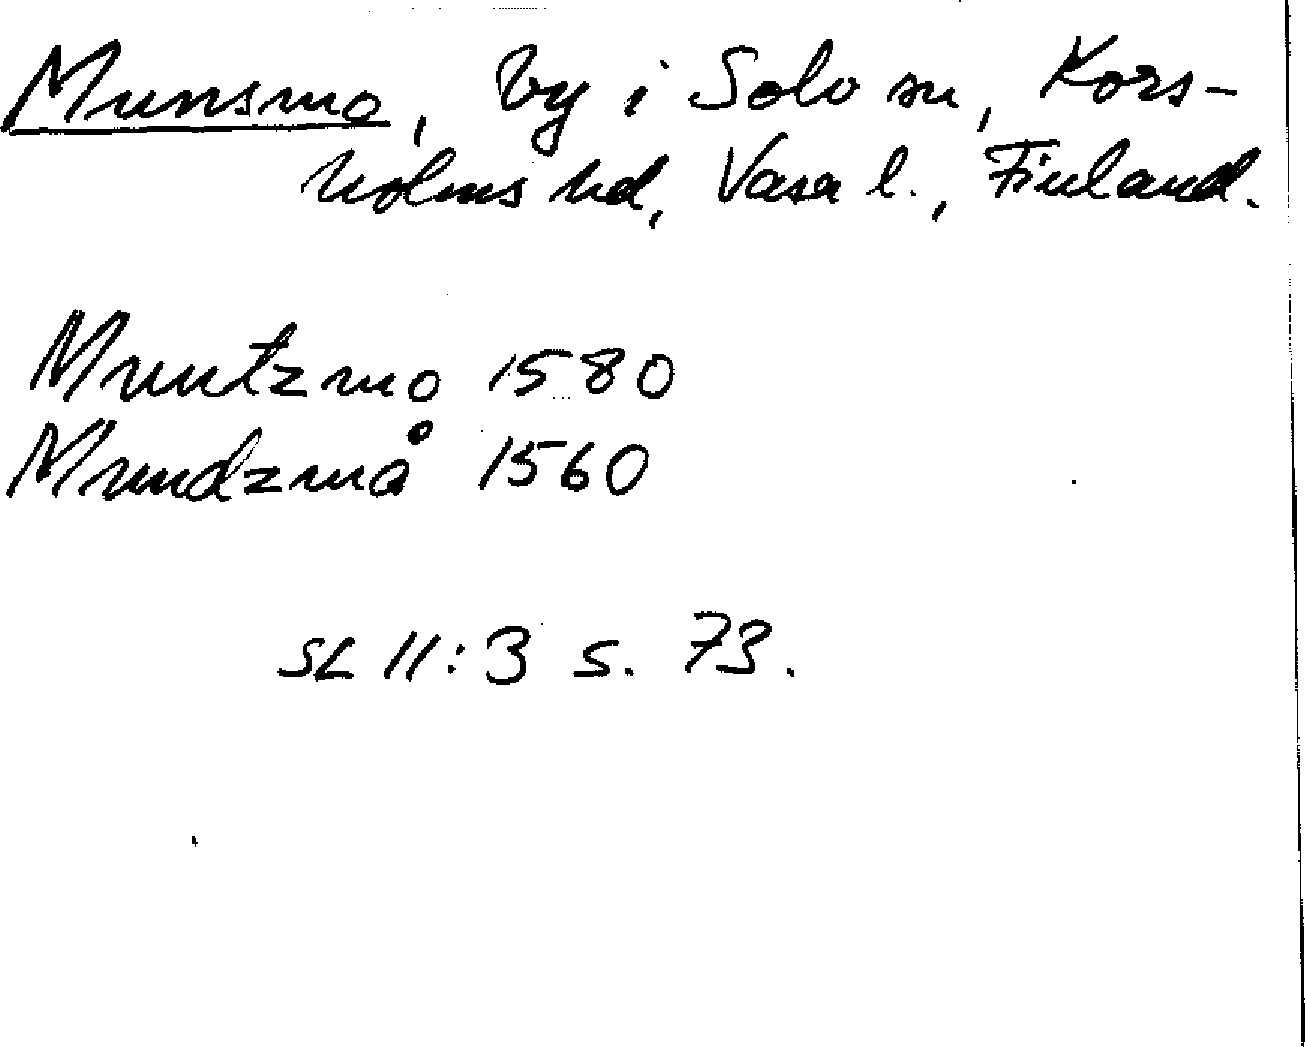 Munsmo, by i Solv sn, Kors-
holms hd, Vasa l., Finland.
Muntzmo 1580
Mundzmå 1560
SL II:3 s. 73.